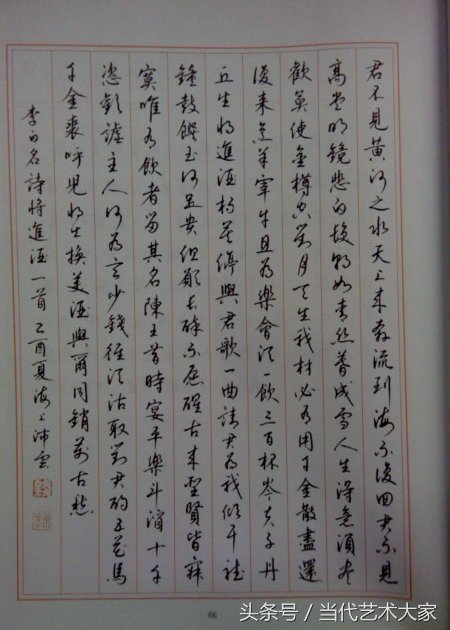 君不見黄河之水天上来奔流到海不復回君不見
高堂明鏡悲白髮朝如青丝暮成雪人生得意須盡
歡莫使金樽空對月天生我材必有用千金散盡還
復来烹羊宰牛且為樂會須一飲三百杯岑夫子丹
丘生将進酒杯莫停與君歌一曲請君為我傾耳聽
鐘鼓饌玉何足貴但願长醉不願醒古来聖賢皆寂
寞唯有飲者留其名陳王昔時宴平樂斗酒十千
恣歡謔主人何為言少錢徑須沽取對君酌五花馬
千金裘呼兒将出换美酒與爾同銷萬古愁
李白名詩将進酒一首乙酉夏海上沛雲
66
头条号／当代艺术大家